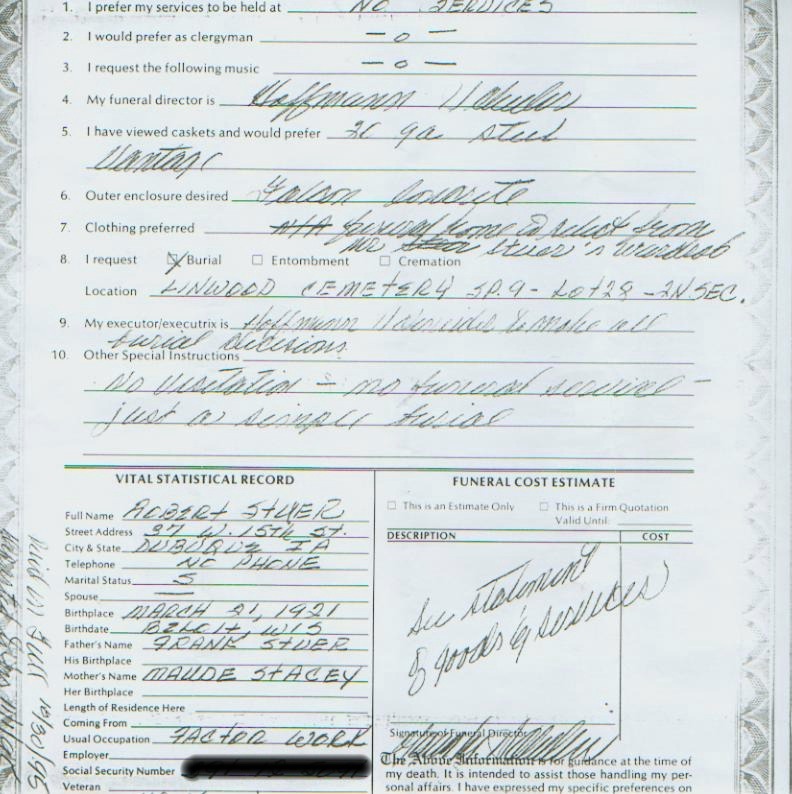 1. I prefer my services to be held at NO SERVICES
2. I would prefer as clergyman — o —
3. I request the following music — o —
4. My funeral director is Hoffmann
5. I have viewed caskets and would prefer 20 ga steel
Vantage
6. Outer enclosure desired Falcon Concrete
7. Clothing preferred N/A funeral home to select from
Mr Stuer's wardrobe
8. I request Burial Entombment Cremation
Location LINWOOD CEMETERY SP. 9 - LOT 28 - 2N SEC.
9. My executor/executrix is Hoffmann to make all
burial decisions
10. Other Special Instructions
No Visitation - no funeral service -
just a simple burial
VITAL STATISTICAL RECORD
Full Name ALBERT STUER
Street Address 37 W. 15th St.
City & State DUBUQUE IA
Telephone NO PHONE
Marital Status S
Spouse —
Birthplace MARCH 21, 1921
Birthdate BELOIT, WIS
Father's Name FRANK STUER
His Birthplace
Mother's Name MAUDE STACEY
Her Birthplace
Length of Residence Here
Coming From
Usual Occupation FACTOR WORK
Employer
Social Security Number
Veteran
FUNERAL COST ESTIMATE
This is an Estimate Only This is a Firm Quotation
Valid Until:
DESCRIPTION COST
See statement
of goods & services
Signature of Funeral Director
The Above Information is for guidance at the time of
my death. It is intended to assist those handling my per-
sonal affairs. I have expressed my specific preferences on
Paid in Full 10/30/95